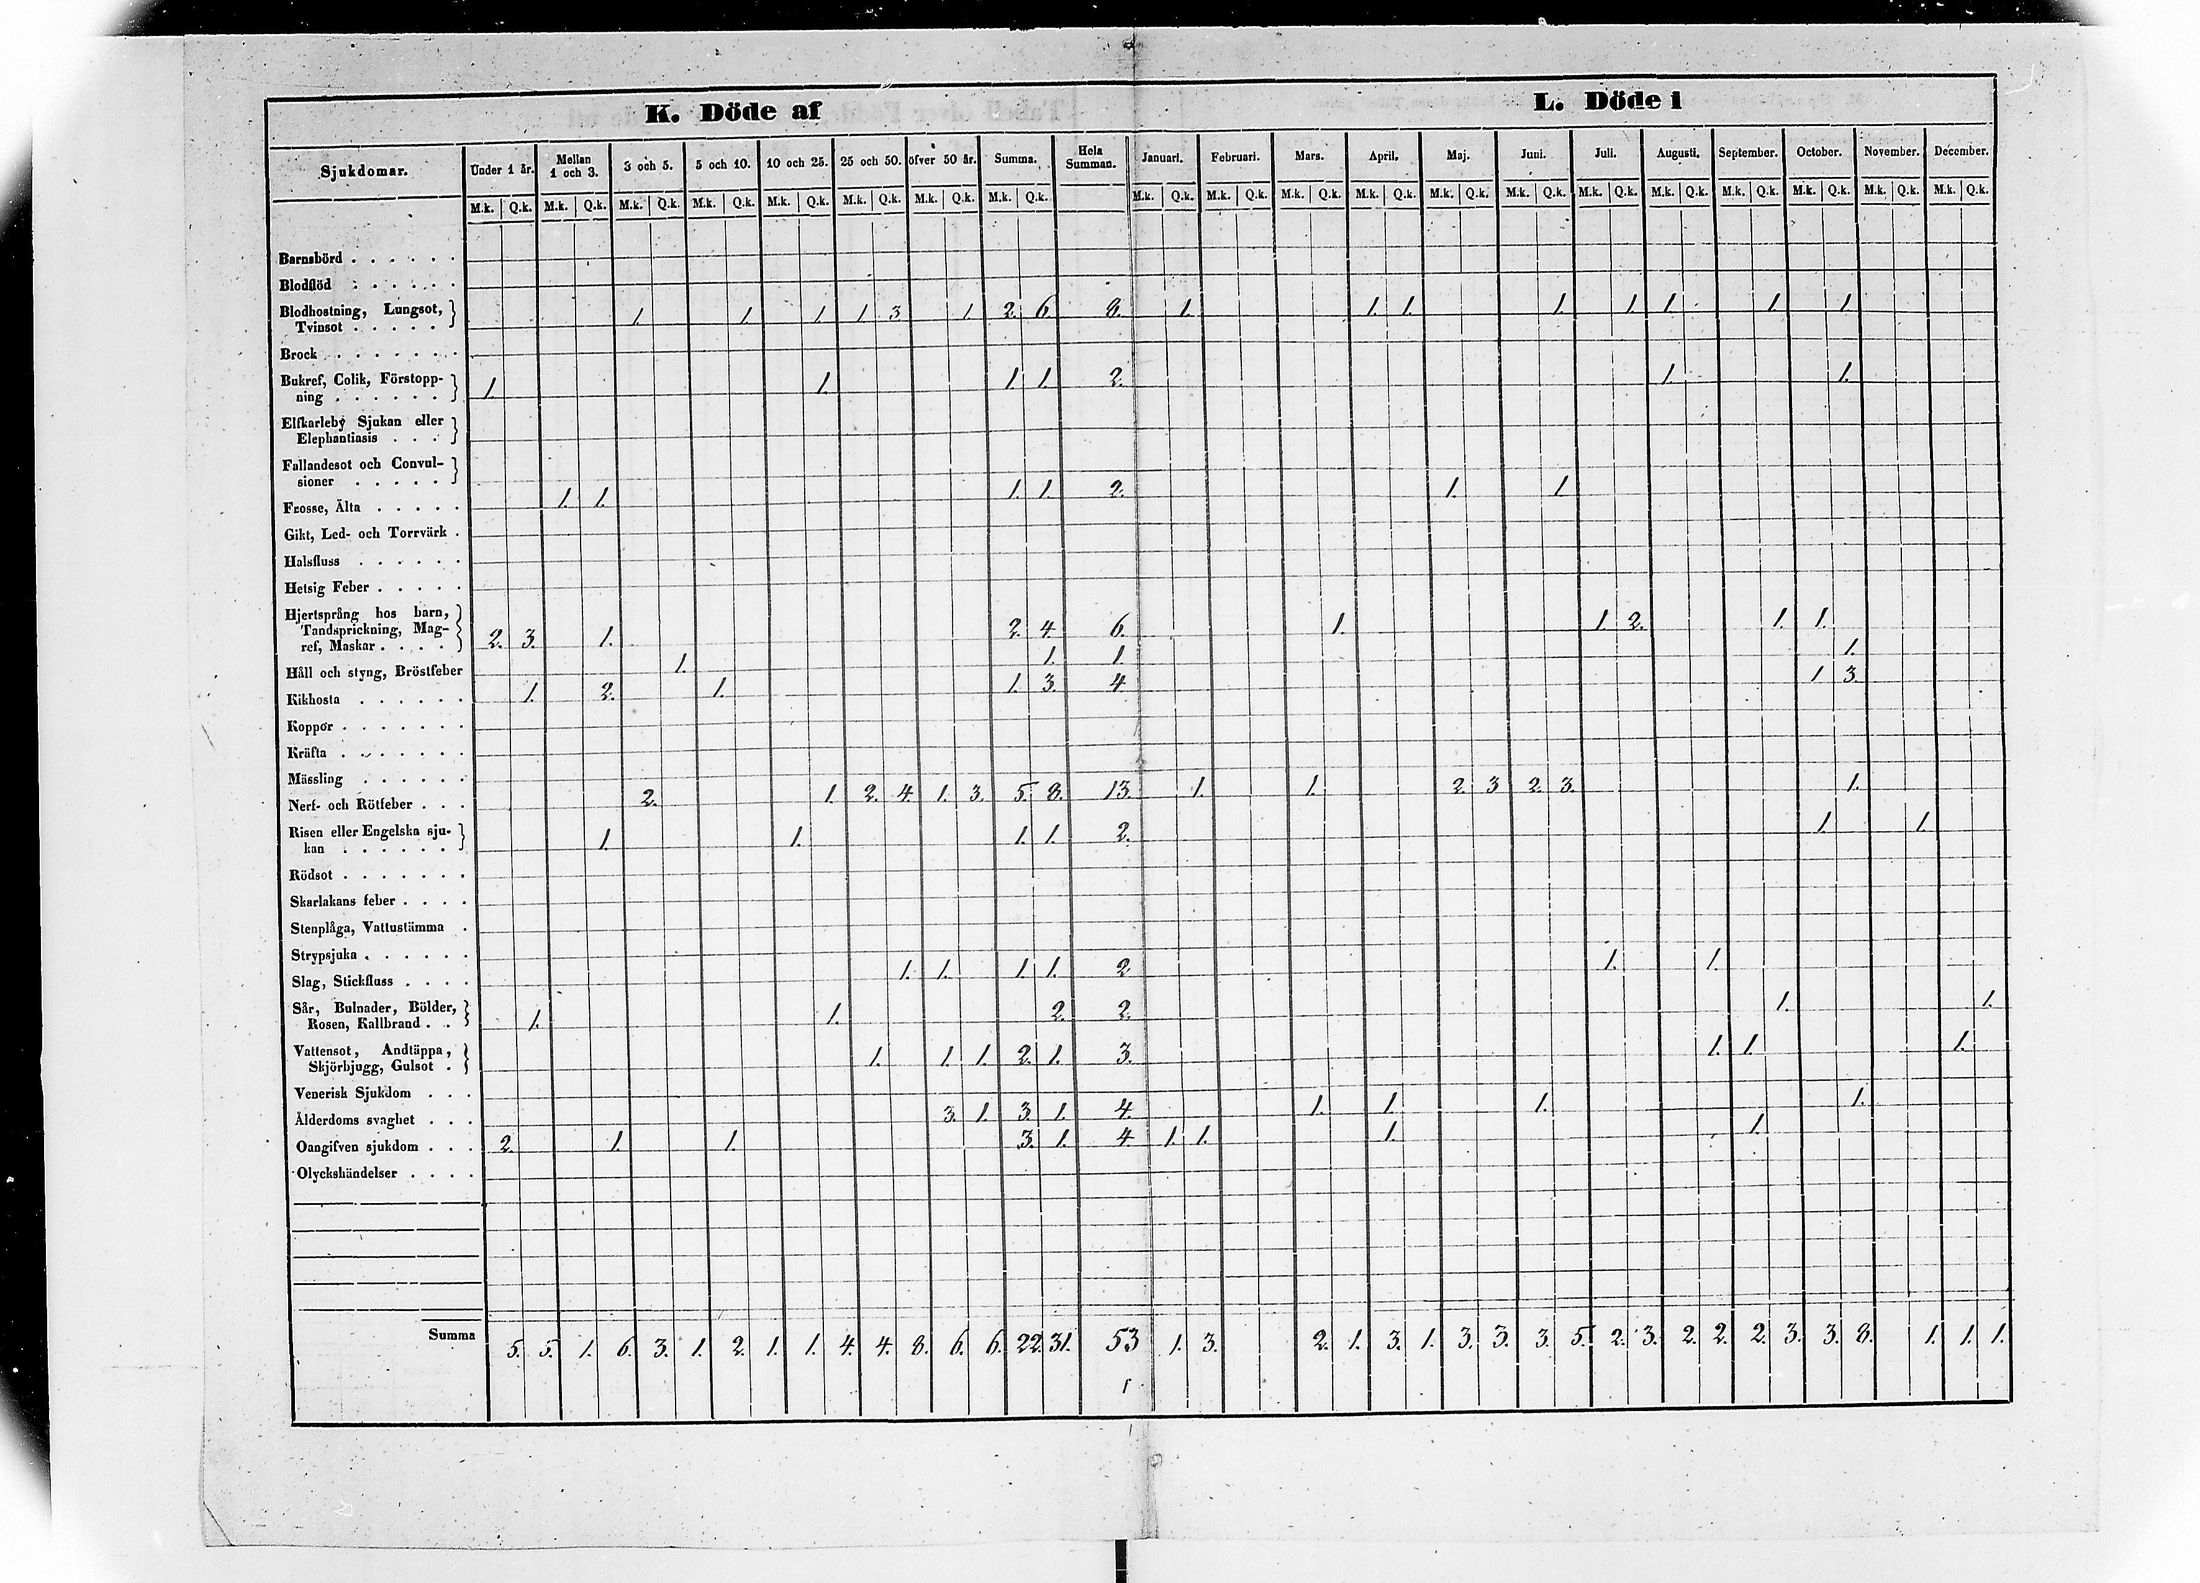 K. Döde af L. Döde i
Sjukdomar. Under 1 år. Mellan 1 och 3. 3 och 5. 5 och 10. 10 och 25. 25 och 50. öfver 50 år. Summa. Hela Summan. Januari. Februari. Mars. April. Maj. Juni. Juli. Augusti. September. October. November. December.
M.k. Q.k. M.k. Q.k. M.k. Q.k. M.k. Q.k. M.k. Q.k. M.k. Q.k. M.k. Q.k. M.k. Q.k. M.k. Q.k. M.k. Q.k. M.k. Q.k. M.k. Q.k. M.k. Q.k. M.k. Q.k. M.k. Q.k. M.k. Q.k. M.k. Q.k. M.k. Q.k. M.k. Q.k. M.k. Q.k.
Barnsbörd . . . . . .
Blodflöd . . . . . .
Blodhostning, Lungsot,
Tvinsot . . . . . 1. 1. 1. 1. 3 1. 2. 6 8. 1. 1. 1. 1. 1. 1. 1. 1.
Brock . . . . . . .
Bukref, Colik, Förstopp-
ning . . . . . . 1. 1. 1. 1. 2. 1. 1.
Elfkarleby Sjukan eller
Elephantiasis . . .
Fallandesot och Convul-
sioner . . . . . 1. 1. 1. 1. 2. 1. 1.
Frosse, Älta . . . . .
Gikt, Led- och Torrvärk .
Halsfluss . . . . . .
Hetsig Feber . . . . .
Hjertsprång hos barn,
Tandsprickning, Mag-
ref, Maskar . . . . 2. 3. 1. 2. 4. 6. 1. 1. 2. 1. 1.
Håll och styng, Bröstfeber 1. 1. 1. 1.
Kikhosta . . . . . . 1. 2. 1. 1. 3. 4. 1. 3.
Koppor . . . . . . .
Kräfta . . . . . . .
Mässling . . . . . .
Nerf- och Rötfeber . . . 2. 1. 2. 4. 1. 3. 5. 8. 13. 1. 1. 2. 3 2. 3. 1.
Risen eller Engelska sju-
kan . . . . . . 1. 1. 1. 1. 2. 1. 1.
Rödsot . . . . . . .
Skarlakans feber . . . .
Stenplåga, Vattustämma .
Strypsjuka . . . . . .
Slag, Stickfluss . . . . 1. 1. 1. 1. 2 1. 1.
Sår, Bulnader, Bölder,
Rosen, Kallbrand . . 1. 1. 2. 2. 1. 1.
Vattensot, Andtäppa,
Skjörbjugg, Gulsot . 1. 1. 1. 2. 1. 3. 1. 1. 1.
Venerisk Sjukdom . . .
Ålderdoms svaghet . . . 3. 1. 3. 1. 4. 1. 1. 1. 1.
Oangifven sjukdom . . . 2. 1. 1. 3. 1. 4 1. 1. 1. 1.
Olyckshändelser . . . .
Summa 5. 5. 1. 6. 3. 1. 2. 1. 1. 4. 4. 8. 6. 6. 22. 31. 53 1. 3. 2. 1. 3. 1. 3. 3. 3. 5. 2. 3. 2. 2. 2. 3. 3. 8. 1. 1. 1.